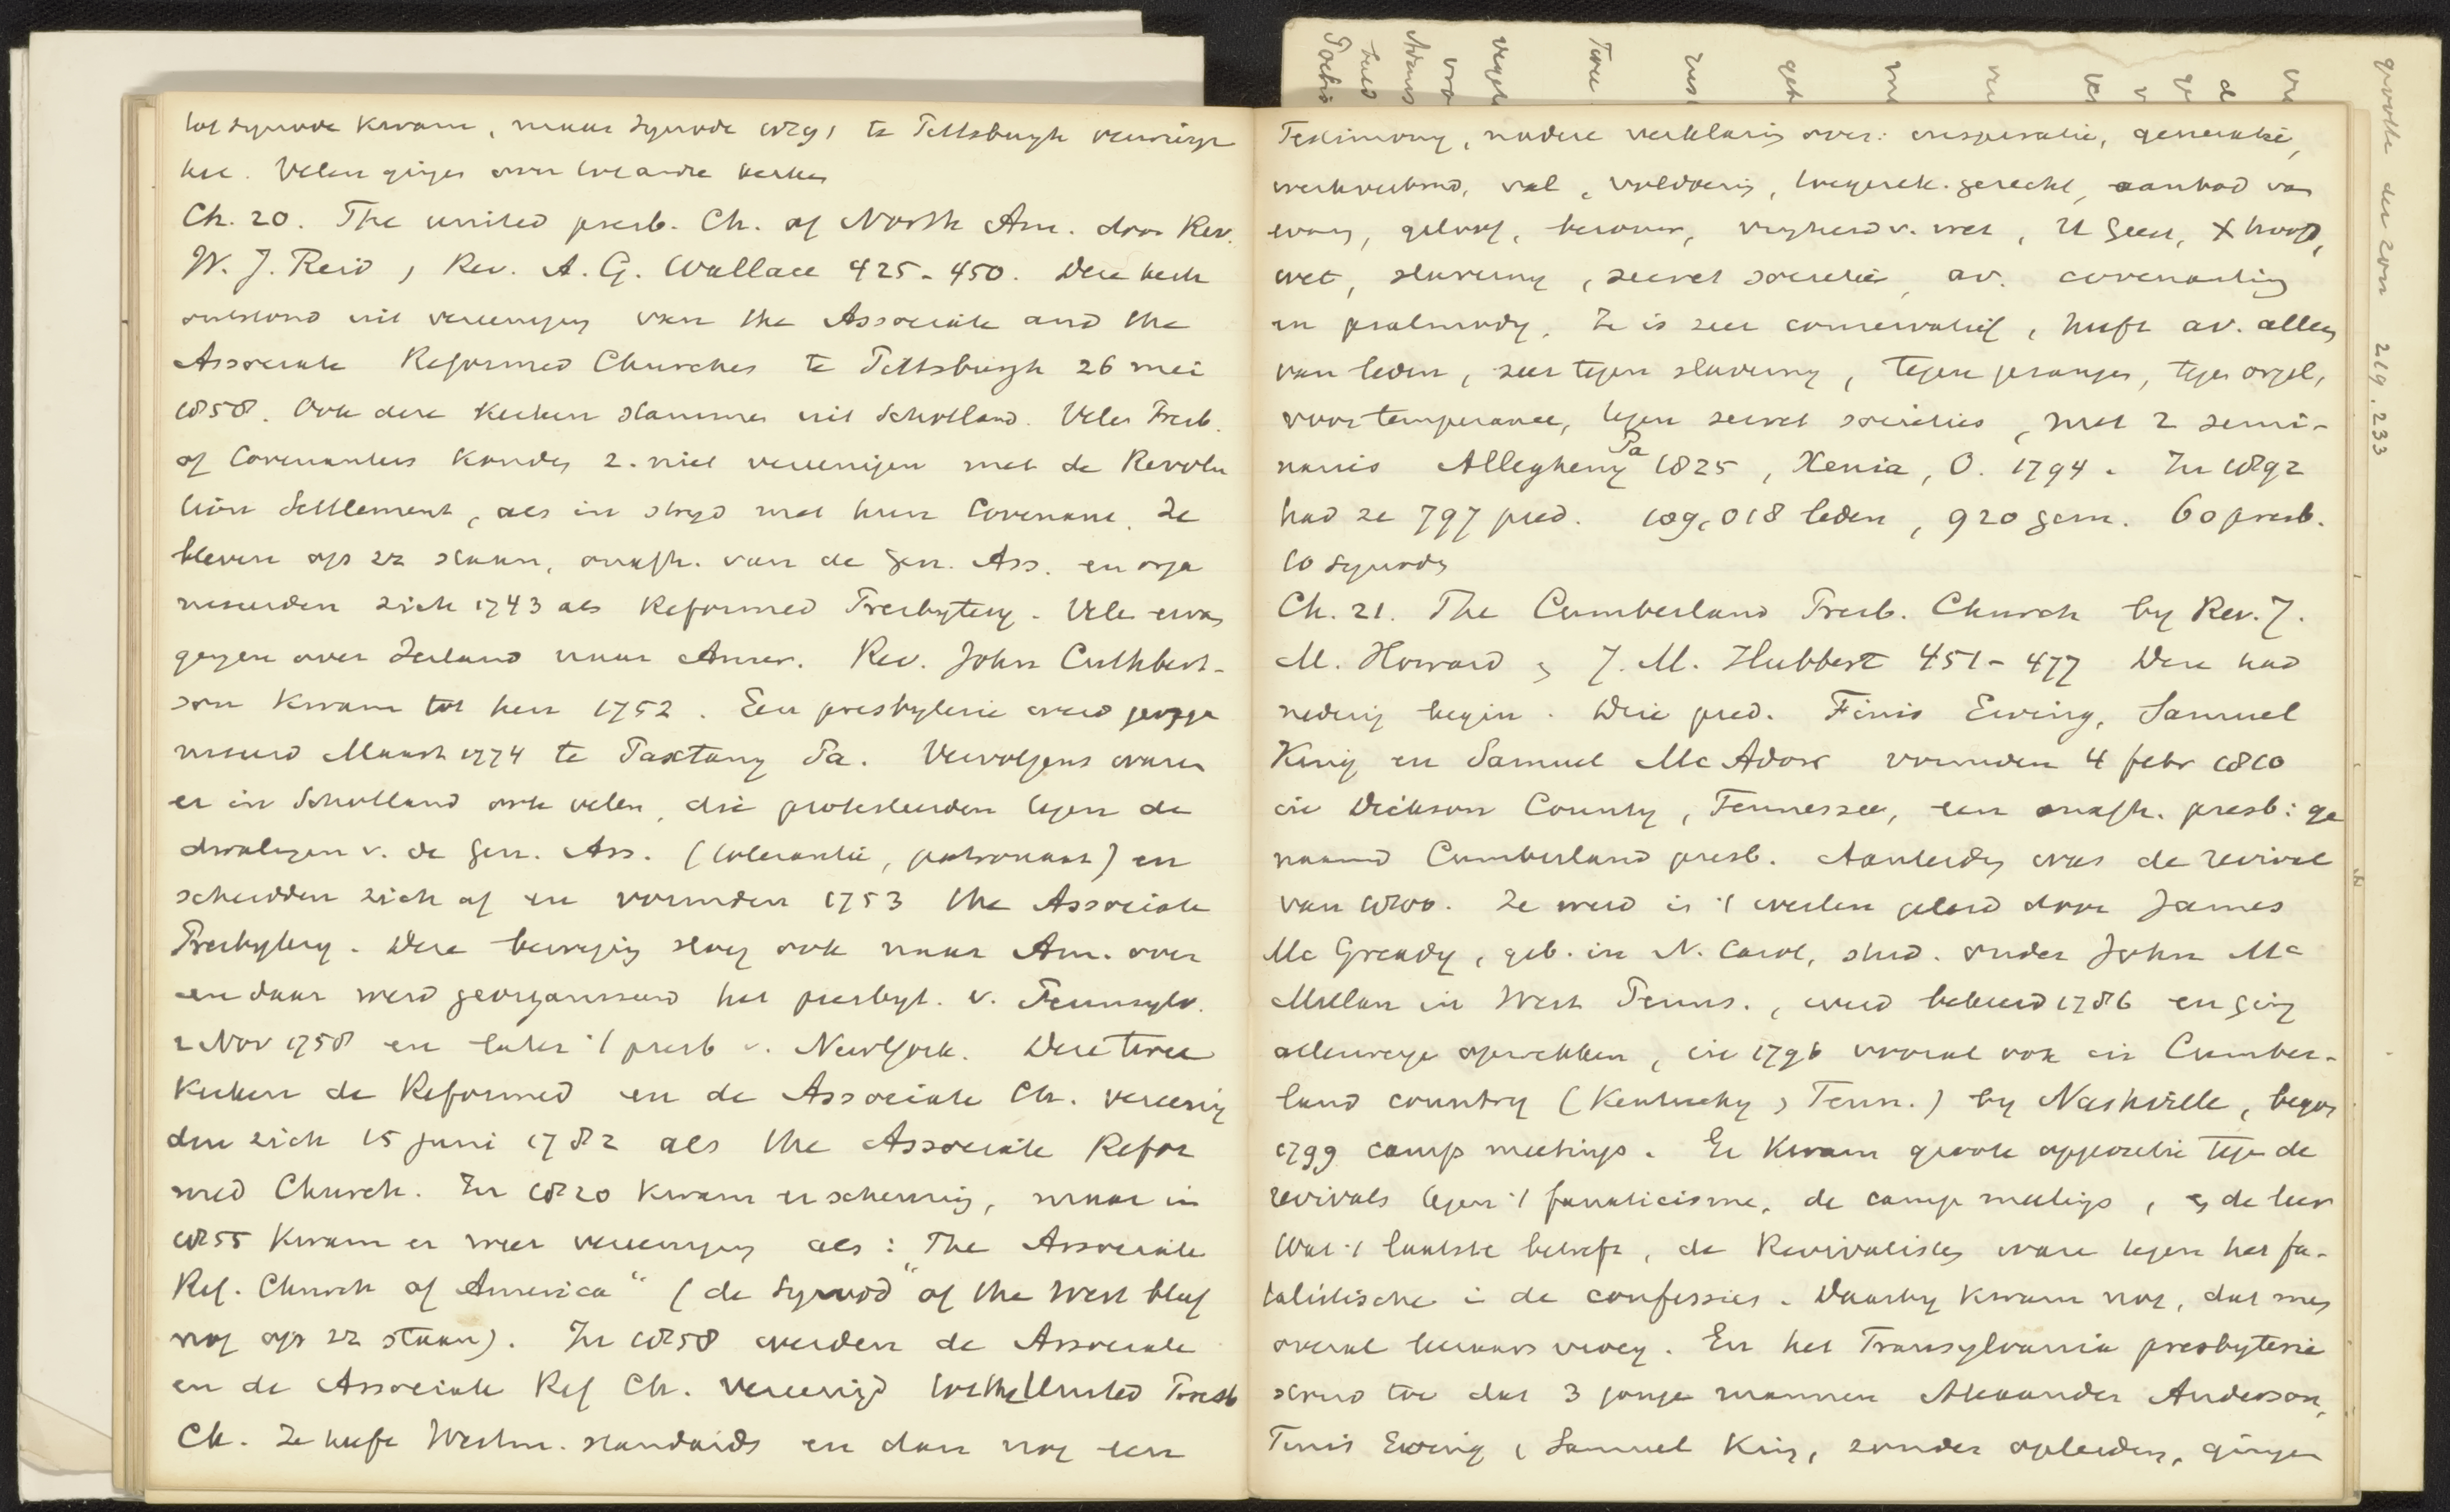 tot synode kwam, maar synode 1891 te Pittsburgh verwierp
het. Velen gingen over tot andre kerken
Ch. 20. The united presb. Ch. of North Am. door Rev.
W. J. Reid, Rev. A. G. Wallace 425-450. Deze kerk
ontstond uit vereeniging van the Associate and the
Associate Reformed Churches te Pittsburgh 26 mei
1858. Ook deze kerken stammen uit Schotland. Vele Presb.
of Covenanters konden z. niet vereenigen met de Revolu
tion Settlement, als in strijd met hun Covenant. Ze
bleven op zz staan, onafh. van de Gen. Ass. en orga
niseerden zich 1743 als Reformed Presbytery. Vele ervan
gingen over Ierland naar Amer. Rev. John Cuthbert-
son kwam tot hen 1752. Een presbyterie werd georga
niseerd Maart 1774 te Paxtang Pa. Vervolgens waren
er in Schotland ook velen, die protesteerden tegen de
dwalingen v. de Gen. Ass. (tolerantie, patronaat) en
scheidden zich af en vormden 1753 the Associate
Presbytery. Deze beweging sloeg ook naar Am. over
en daar werd georganiseerd het presbyt. v. Pennsylv.
2 Nov 1758 en later 't presb v. NewYork. Deze twee
kerken de Reformed en de Associate Ch. vereenig
den zich 15 juni 1782 als the Associate Refor
med Church. In 1820 kwam er scheuring, maar in
1855 kwam er weer vereeniging als: The Associate
Ref. Church of America" (de Synod" of the West bleef
nog op zz staan). In 1858 werden de Associate
en de Associate Ref Ch. vereenigd tot the United Presb
Ch. Ze heeft Westm. standards en dan nog een
Testimony, nadere verklaring over: inspiratie, generatie,
werkverbond, val, voldoening, toegerek. gerecht, aanbod van
evang, geloof, berouw, vrijheid v. wet, H Geest, X hoofd,
wet, slaverny, secret societies, av. covenanting
en psalmody. Ze is zeer conservatief, heeft av. alleen
van leden, zeer tegen slaverny, tegen gezangen, tegen orgel,
voor temperance, tegen secret societies, met 2 semi-
naries Allegheny Pa 1825, Xenia, O. 1794. In 1892
had ze 797 pred. 109,018 leden, 920 gem. 60 presb.
10 synodes
Ch. 21. The Cumberland Presb. Church by Rev. J.
M. Howard & J. M. Hubbert 451-477 Deze had
nederig begin. Drie pred. Finis Ewing, Samuel
King en Samuel Mc Adow vormden 4 febr 1810
in Dickson County, Tennessee, een onafh. presb: ge
naamd Cumberland presb. Aanleiding was de revival
van 1800. Ze werd in 't westen geleid door James
Mc Gready, geb. in N. Carol, stud. onder John Mc
Millan in West Penns., werd bekeerd 1786 en ging
allerwege opwekken, in 1796 vooral ook in Cumber-
land country (Kentucky & Tenn.) by Nashville, begon
1799 camp meetings. Er kwam groote oppositie tegen de
revivals tegen 't fanaticisme, de camp meetings, & de leer
Wat 't laatste betreft, de Revivalisten ware tegen het fa-
talistische in de confessies. Daarby kwam nog, dat men
overal leeraars vroeg. En het Transylvania presbyterie
stond toe dat 3 jonge mannen Alexander Anderson,
Finis Ewing, Samuel King, zonder opleiding, gingen
grootte der zon 219, 233